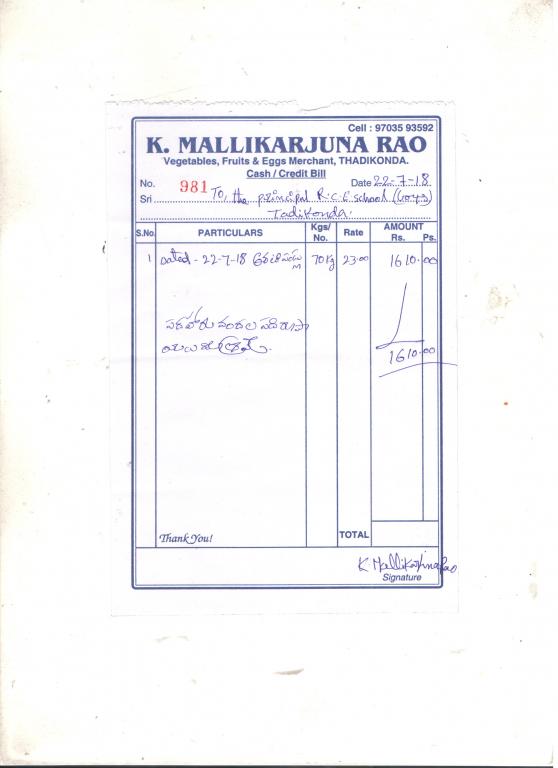 Cell : 97035 93592
K. MALLIKARJUNA RAO
Vegetables, Fruits & Eggs Merchant, THADIKONDA.
Cash / Credit Bill
No. 981 Date 22-7-18
Sri To, the principal R.C.E school (Boys)
Tadikonda.
S.No. PARTICULARS Kgs/ No. Rate AMOUNT Rs. Ps.
1 Dated - 22-7-18 అరటిపండ్లు 70 Kg 23.00 1610.00
పదహారు వందల పది రూపా
1610.00
Thank You! TOTAL
K. Mallikarjuna Rao
Signature